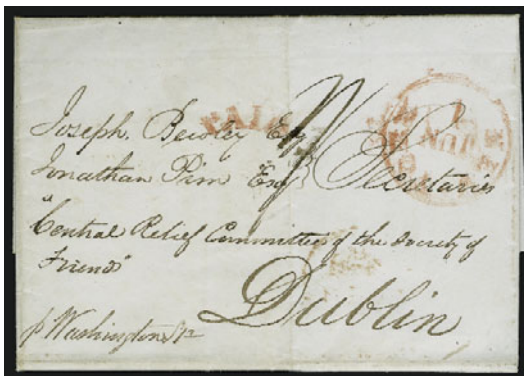 PAID
Joseph Bewley Esq
Jonathan Pim Esq Secretaries
"Central Relief Committee of the Society of
Friends"
Dublin
p Washington